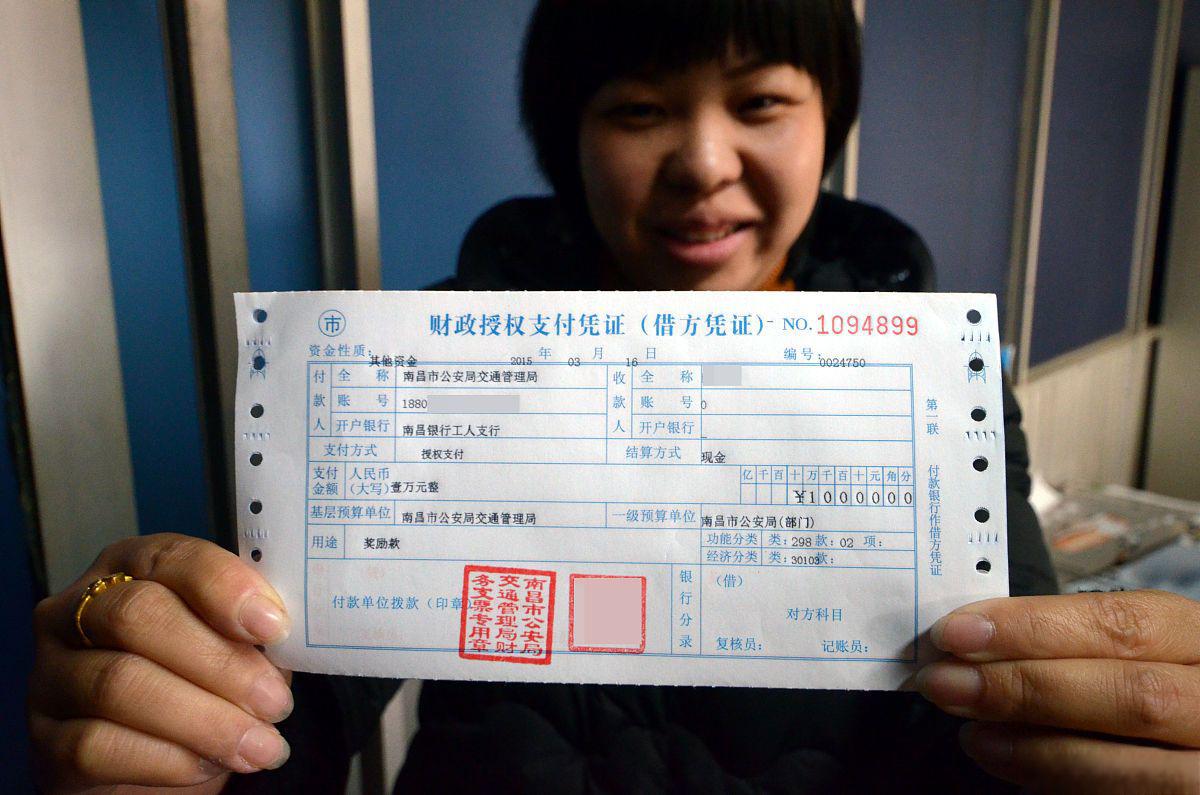 市
财政授权支付凭证（借方凭证）- NO.1094899
资金性质: 其他资金 2015 年 03 月 16 日 编号: 0024750
付款人 全称 南昌市公安局交通管理局 收款人 全称
账号 1880 账号 0
开户银行 南昌银行工人支行 开户银行
支付方式 授权支付 结算方式 现金
支付金额 人民币(大写) 壹万元整 亿千百十万千百十元角分
¥1000000
基层预算单位 南昌市公安局交通管理局 一级预算单位 南昌市公安局(部门)
用途 奖励款 功能分类 类: 298 款: 02 项:
经济分类 类: 30103 款:
付款单位拨款（印章）
南昌市公安局
交通管理局财
务支票专用章
银行分录 （借）
对方科目
复核员: 记账员:
第一联 付款银行作借方凭证